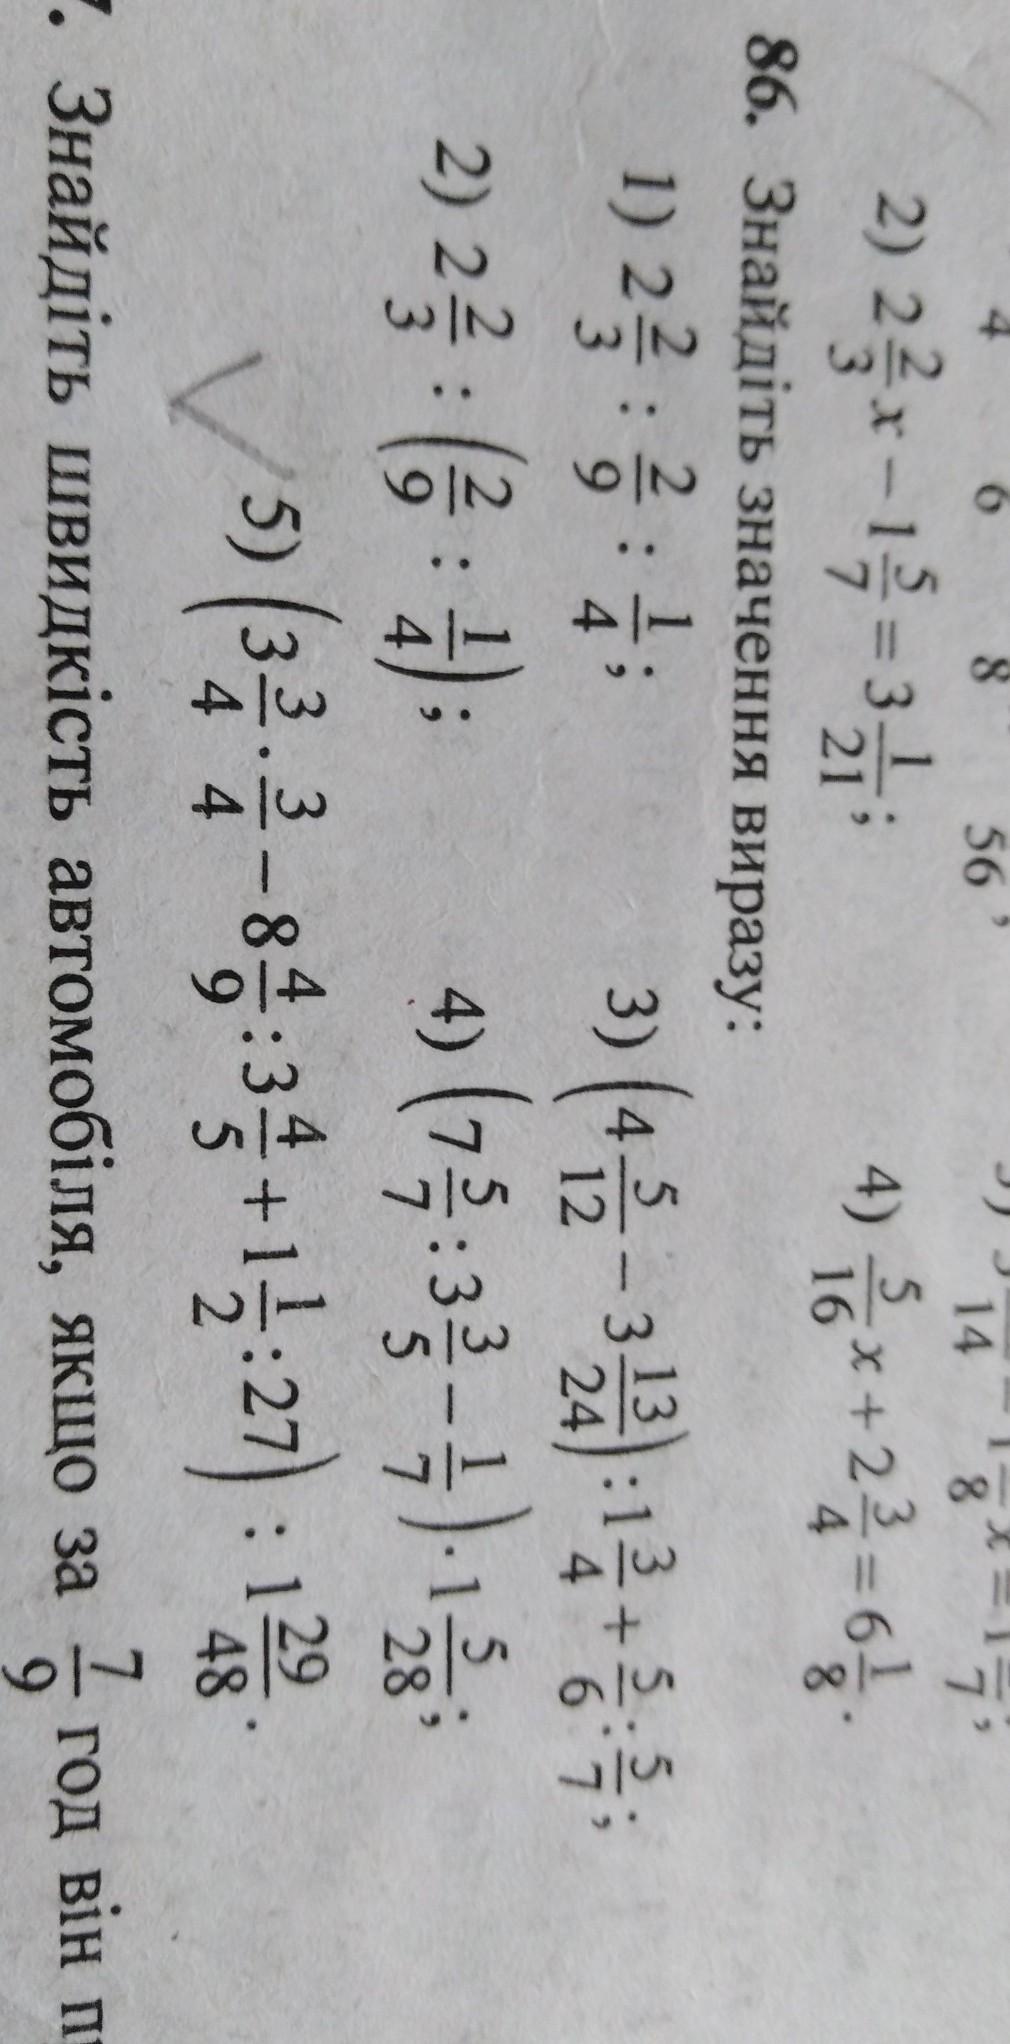 4 6 8 56,
2) 2 2/3 x − 1 5/7 = 3 1/21;
4) 5/16 x + 2 3/4 = 6 1/8.
86. Знайдіть значення виразу:
1) 2 2/3 : 2/9 : 1/4;
3) (4 5/12 − 3 13/24) : 1 3/4 + 5/6 : 5/7;
2) 2 2/3 : (2/9 : 1/4);
4) (7 5/7 : 3 3/5 − 1/7) · 1 5/28;
5) (3 3/4 · 3/4 − 8 4/9 : 3 4/5 + 1 1/2 : 27) : 1 29/48.
Знайдіть швидкість автомобіля, якщо за 7/9 год він